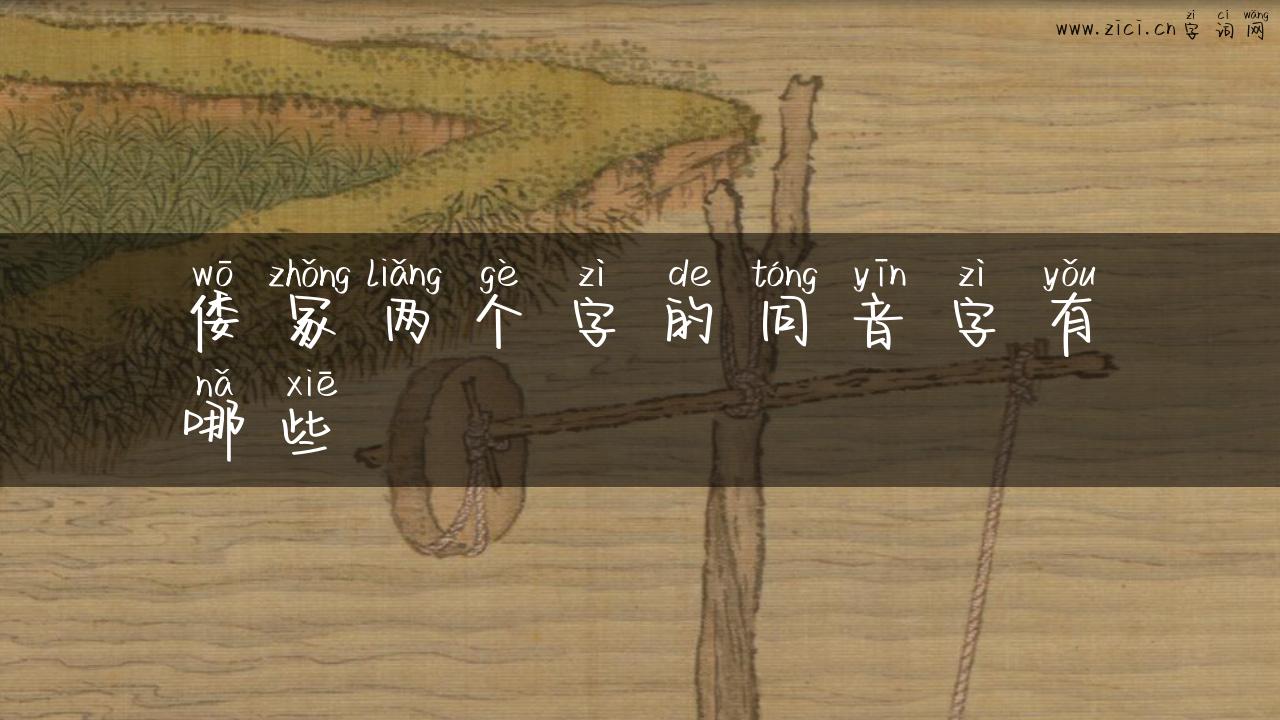 zì cí wǎng
www.zici.cn 字词网
wō zhǒng liǎng gè zì de tóng yīn zì yǒu
倭冢两个字的同音字有
nǎ xiē
哪些